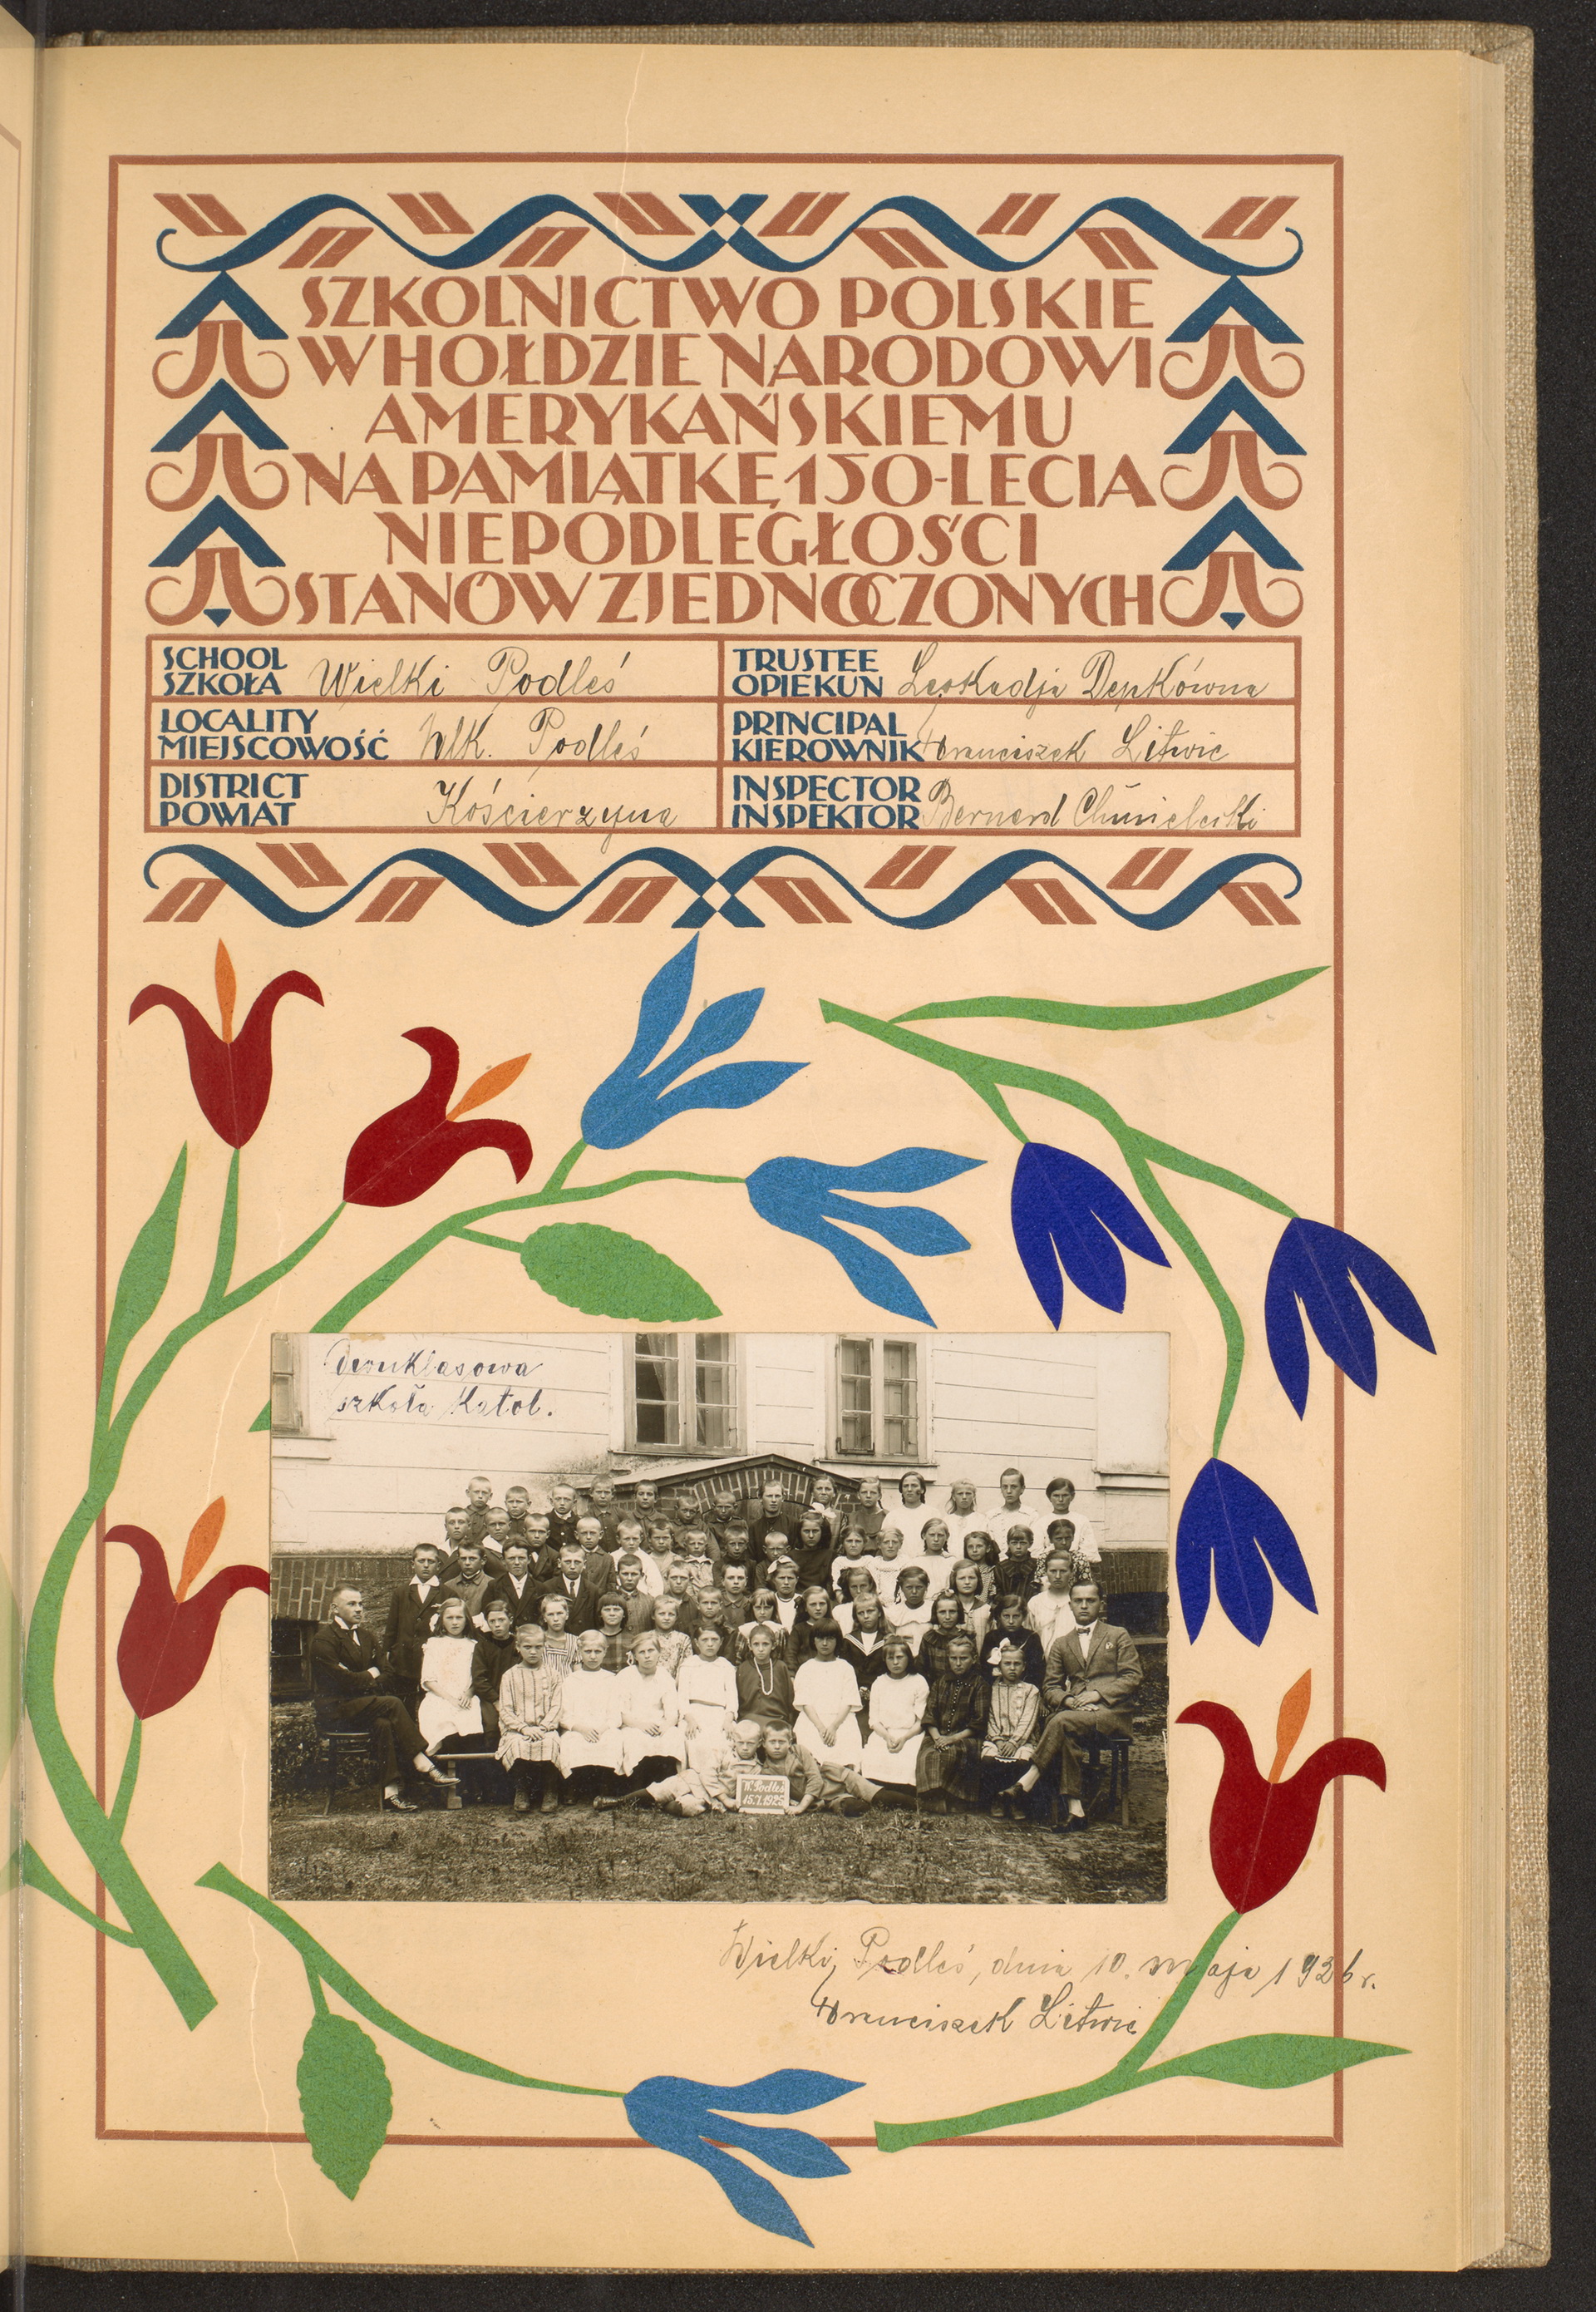 SZKOLNICTWO POLSKIE
W HOŁDZIE NARODOWI
AMERYKAŃSKIEMU
NA PAMIĄTKĘ 150-LECIA
NIEPODLEGŁOŚCI
STANÓW ZJEDNOCZONYCH
SCHOOL
SZKOŁA Wielki Podleś
LOCALITY
MIEJSCOWOŚĆ Wlk. Podleś
DISTRICT
POWIAT Kościerzyna
TRUSTEE
OPIEKUN Leokadja Depkówna
PRINCIPAL
KIEROWNIK Franciszek Litwic
INSPECTOR
INSPEKTOR Bernard Chmielecki
Dwuklasowa
szkoła Katol.
W. Podleś
15.7.1925
Wielki Podleś, dnia 10. maja 1926 r.
Franciszek Litwic